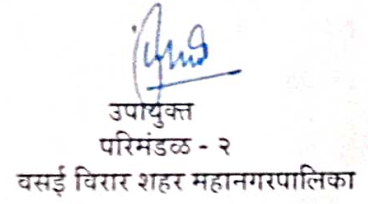 उपायुक्त
परिमंडळ - २
वसई विरार शहर महानगरपालिका